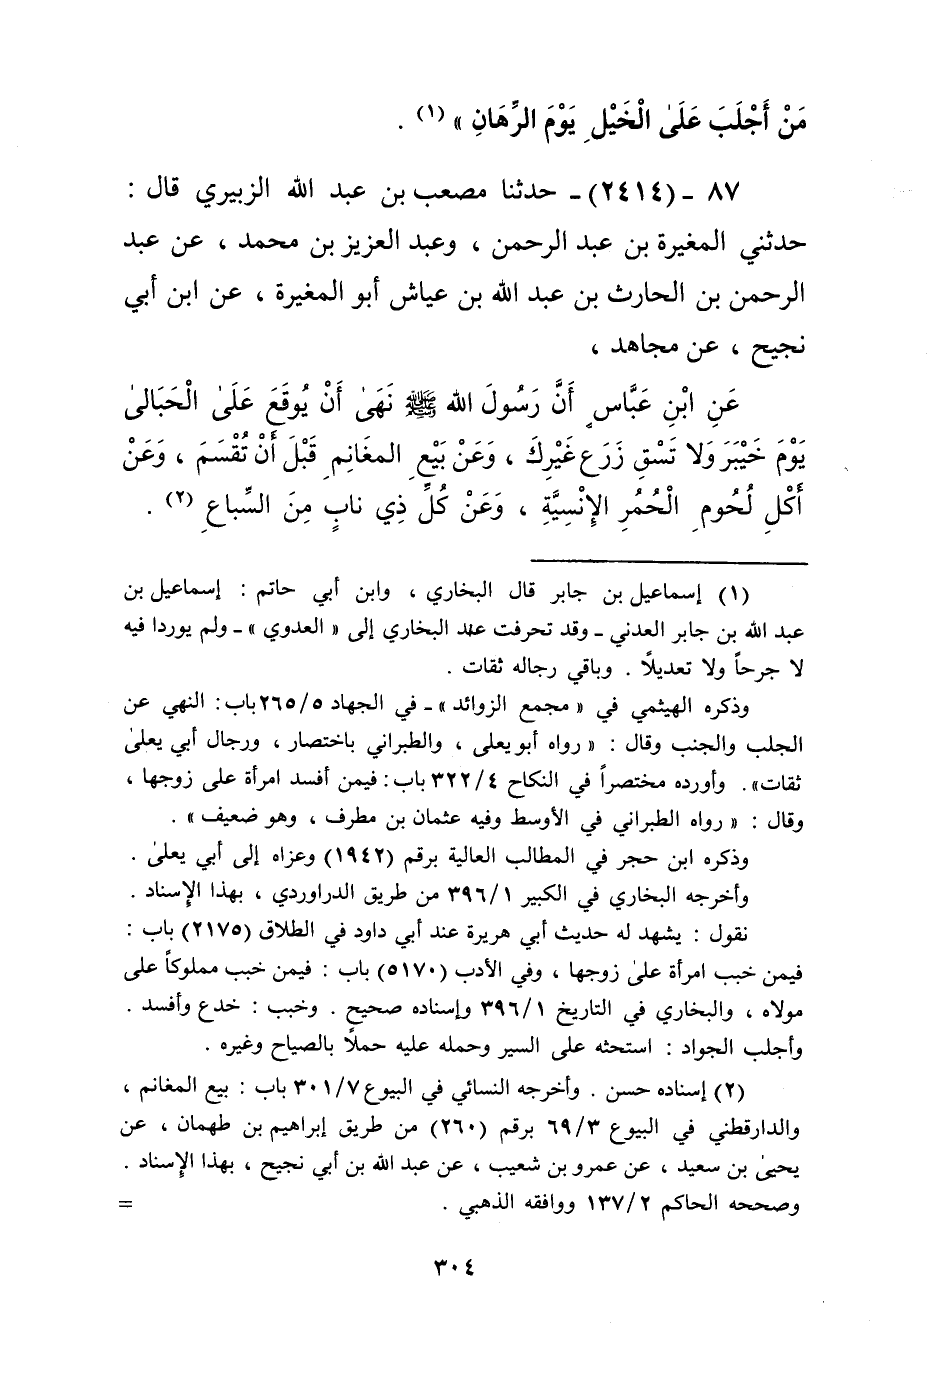 مَنْ أَجْلَبَ عَلَىٰ الْخَيْلِ يَوْمَ الرِّهَانِ » (١) .
٨٧ ـ (٢٤١٤) ـ حدثنا مصعب بن عبد الله الزبيري قال :
حدثني المغيرة بن عبد الرحمن ، وعبد العزيز بن محمد ، عن عبد
الرحمن بن الحارث بن عبد الله بن عياش أبو المغيرة ، عن ابن أبي
نجيح ، عن مجاهد ،
عَنِ ابْنِ عَبَّاسٍ أَنَّ رَسُولَ الله ﷺ نَهَىٰ أَنْ يُوقَعَ عَلَىٰ الْحَبَالىٰ
يَوْمَ خَيْبَرَ وَلا تَسْقِ زَرَعَ غَيْرِكَ ، وَعَنْ بَيْعِ المغَانِمِ قَبْلَ أَنْ تُقْسَمَ ، وَعَنْ
أَكْلِ لُحُومِ الْحُمُرِ الإِنْسِيَّةِ ، وَعَنْ كُلِّ ذِي نابٍ مِنَ السِّباعِ (٢) .
(١) إسماعيل بن جابر قال البخاري ، وابن أبي حاتم : إسماعيل بن
عبد الله بن جابر العدني ـ وقد تحرفت عند البخاري إلى « العدوي » ـ ولم يوردا فيه
لا جرحاً ولا تعديلًا . وباقي رجاله ثقات .
وذكره الهيثمي في « مجمع الزوائد » ـ في الجهاد ٢٦٥/٥ باب : النهي عن
الجلب والجنب وقال : « رواه أبو يعلى ، والطبراني باختصار ، ورجال أبي يعلىٰ
ثقات» . وأورده مختصراً في النكاح ٣٢٢/٤ باب : فيمن أفسد امرأة على زوجها ،
وقال : « رواه الطبراني في الأوسط وفيه عثمان بن مطرف ، وهو ضعيف » .
وذكره ابن حجر في المطالب العالية برقم (١٩٤٢) وعزاه إلى أبي يعلىٰ .
وأخرجه البخاري في الكبير ٣٩٦/١ من طريق الدراوردي ، بهذا الإسناد .
نقول : يشهد له حديث أبي هريرة عند أبي داود في الطلاق (٢١٧٥) باب :
فيمن خبب امرأة علىٰ زوجها ، وفي الأدب (٥١٧٠) باب : فيمن خبب مملوكاً على
مولاه ، والبخاري في التاريخ ٣٩٦/١ وإسناده صحيح . وخبب : خدع وأفسد .
وأجلب الجواد : استحثه على السير وحمله عليه حملًا بالصياح وغيره .
(٢) إسناده حسن . وأخرجه النسائي في البيوع ٣٠١/٧ باب : بيع المغانم ،
والدارقطني في البيوع ٦٩/٣ برقم (٢٦٠) من طريق إبراهيم بن طهمان ، عن
يحيىٰ بن سعيد ، عن عمرو بن شعيب ، عن عبد الله بن أبي نجيح ، بهذا الإسناد .
وصححه الحاكم ١٣٧/٢ ووافقه الذهبي . =
٣٠٤